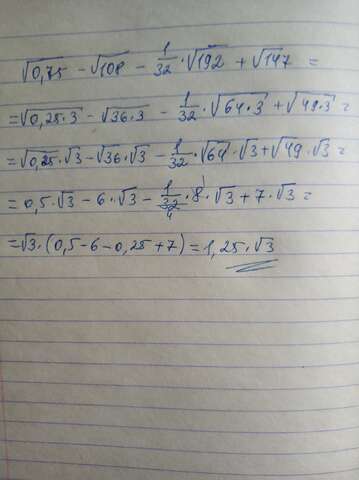 √0,75 - √108 - 1/32 · √192 + √147 =
= √0,25·3 - √36·3 - 1/32 · √64·3 + √49·3 =
= √0,25 · √3 - √36 · √3 - 1/32 · √64 · √3 + √49 · √3 =
= 0,5 · √3 - 6 · √3 - 1/32 4 · 8 1 · √3 + 7 · √3 =
= √3 · (0,5 - 6 - 0,25 + 7) = 1,25 · √3